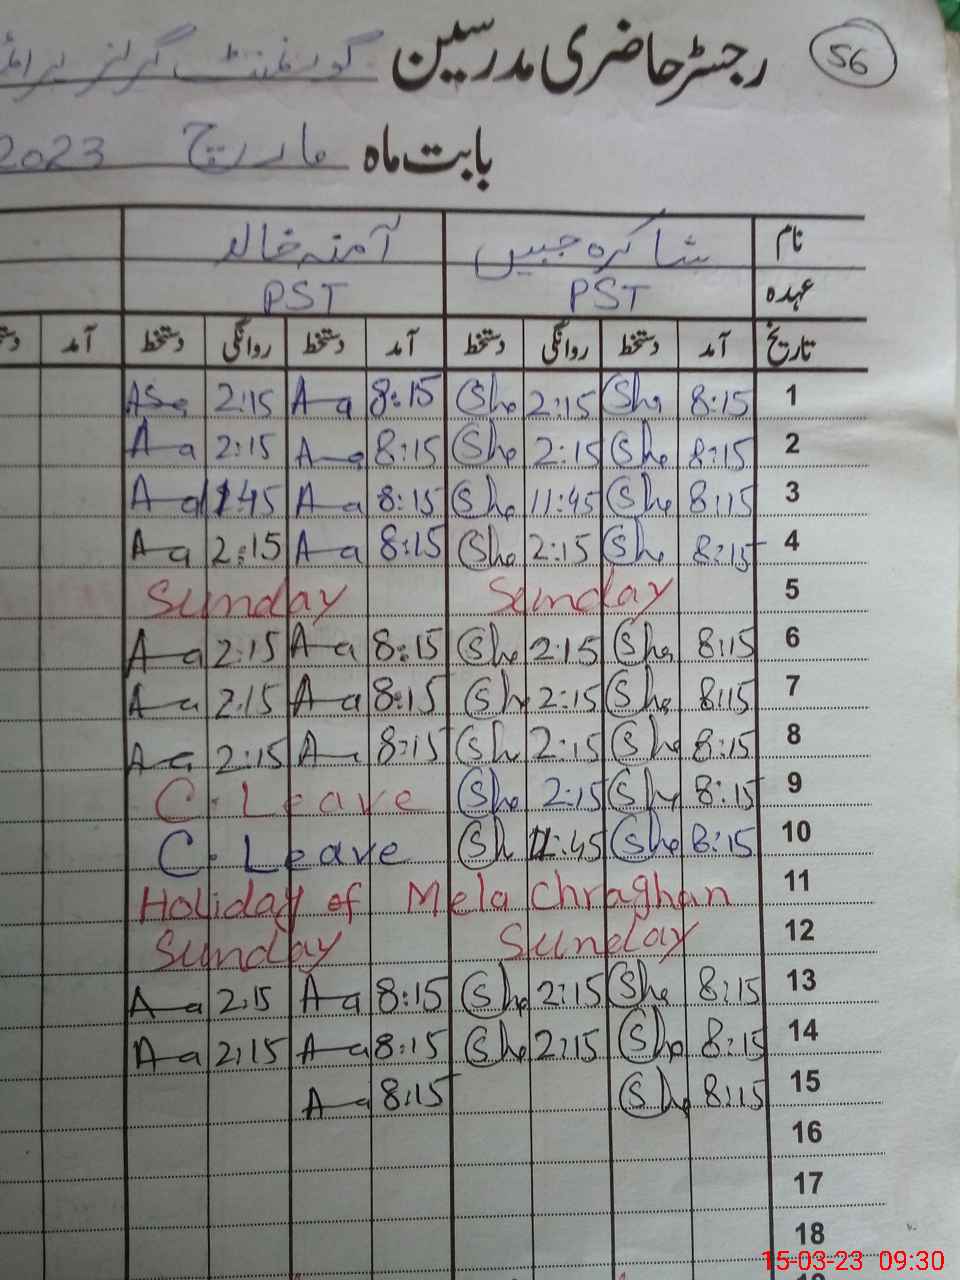 56
رجسٹر حاضری مدرسین گورنمنٹ گرلز پرائمر
بابت ماہ مارچ 2023
نام شاکرہ جبیں آمنہ خالد
عہدہ PST PST
تاریخ آمد دستخط روانگی دستخط آمد دستخط روانگی دستخط آمد دستخط
1 8:15 She 2:15 She 8:15 A-a 2:15
2 8:15 She 2:15 She 8:15 A-a 2:15 A-a
3 8:15 She 11:45 She 8:15 A-a 11:45 A-a
4 8:15 She 2:15 She 8:15 A-a 2:15 A-a
5 Sunday Sunday
6 8:15 She 2:15 She 8:15 A-a 2:15 A-a
7 8:15 She 2:15 She 8:15 A-a 2:15 A-a
8 8:15 She 2:15 She 8:15 A-a 2:15 A-a
9 8:15 She 2:15 She C. Leave
10 8:15 She 11:45 Sh C. Leave
11 Holiday of Mela Chraghan
12 Sunday Sunday
13 8:15 She 2:15 She 8:15 A-a 2:15 A-a
14 8:15 She 2:15 She 8:15 A-a 2:15 A-a
15 8:15 She 8:15 A-a
16
17
18
15-03-23 09:30